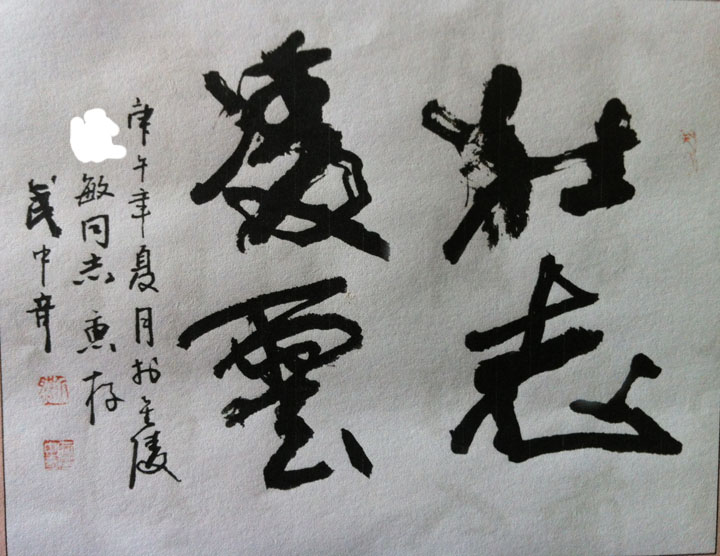 壮志
凌雲
庚午年夏月於金陵
敏同志惠存
武中奇